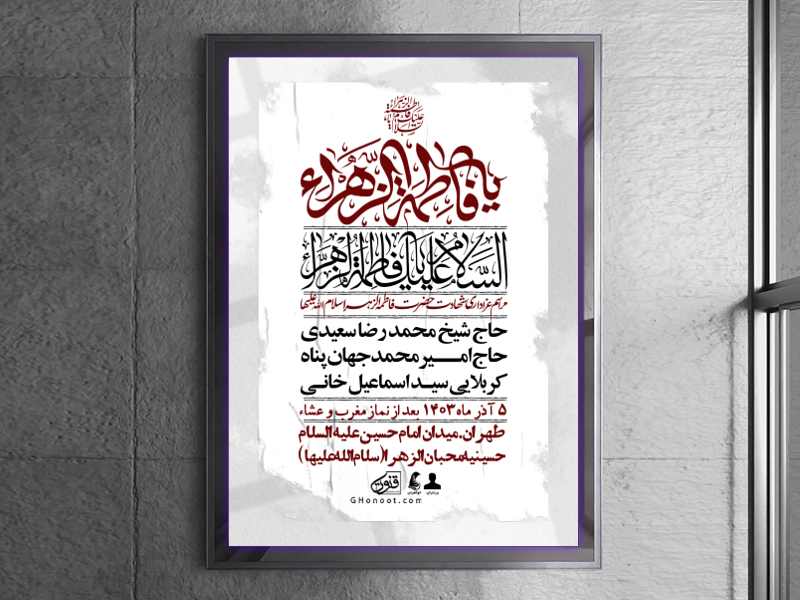 السلام علیک یا فاطمة الزهراء
یا فاطمة الزهراء
السلام علیک یا فاطمة الزهراء
مراسم عزاداری شهادت حضرت فاطمه الزهرا سلام الله علیها
حاج شیخ محمد رضا سعیدی
حاج امیر محمد جهان پناه
کربلایی سید اسماعیل خانی
۵ آذر ماه ۱۴۰۳ بعد از نماز مغرب و عشاء
طهران.میدان امام حسین علیه السلام
حسینیه محبان الزهرا (سلام الله علیها)
قنوت خواهران برادران
GHonoot.com